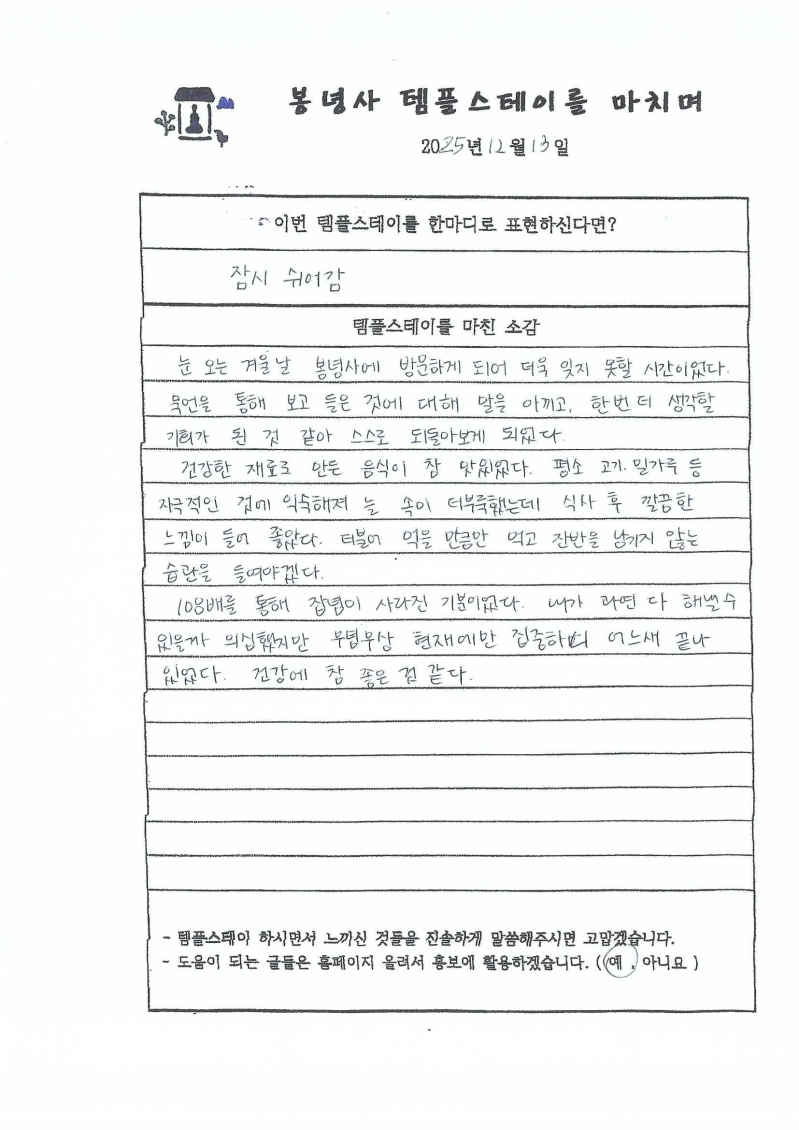 봉녕사 템플스테이를 마치며
2025년 12월 13일
이번 템플스테이를 한마디로 표현하신다면?
잠시 쉬어감
템플스테이를 마친 소감
눈 오는 겨울날 봉녕사에 방문하게 되어 더욱 잊지 못할 시간이었다.
묵언을 통해 보고 들은 것에 대해 말을 아끼고, 한번 더 생각할
기회가 된 것 같아 스스로 되돌아보게 되었다.
건강한 재료로 만든 음식이 참 맛있었다. 평소 고기·밀가루 등
자극적인 것에 익숙해져 늘 속이 더부룩했는데 식사 후 깔끔한
느낌이 들어 좋았다. 더불어 먹을 만큼만 먹고 잔반을 남기지 않는
습관을 들여야겠다.
108배를 통해 잡념이 사라진 기분이었다. 내가 과연 다 해낼 수
있을까 의심했지만 무념무상 현재에만 집중하며 어느새 끝나
있었다. 건강에 참 좋은 것 같다.
- 템플스테이 하시면서 느끼신 것들을 진솔하게 말씀해주시면 고맙겠습니다.
- 도움이 되는 글들은 홈페이지 올려서 홍보에 활용하겠습니다. ( 예 , 아니요 )